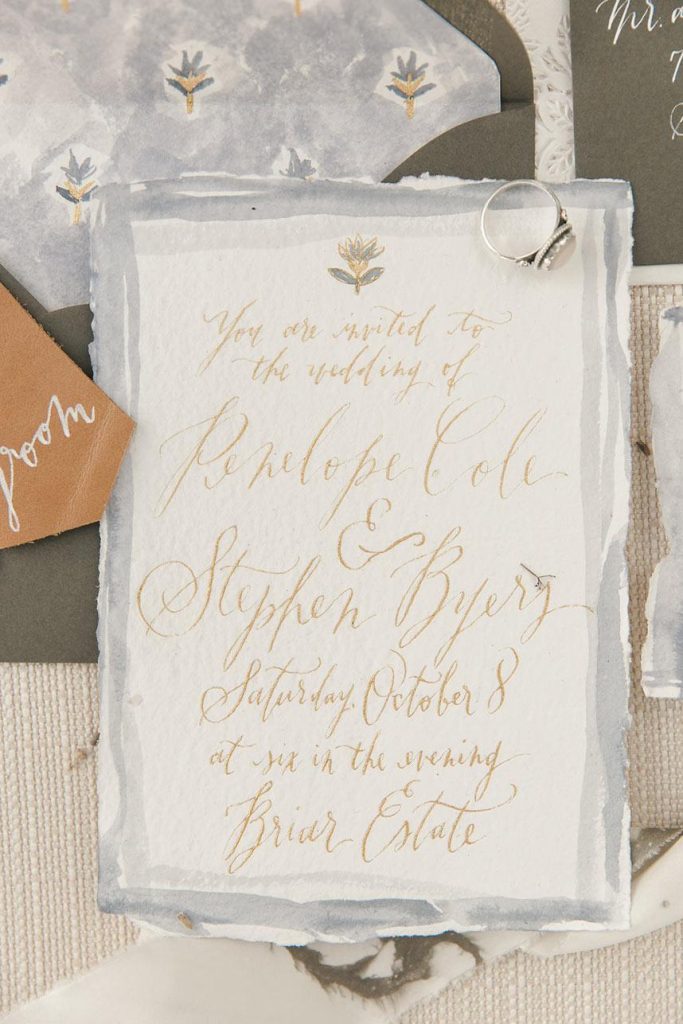 Mr.
7
You are invited to
the wedding of
Penelope Cole
&
Stephen Byers
Saturday, October 8
at six in the evening
Briar Estate
groom